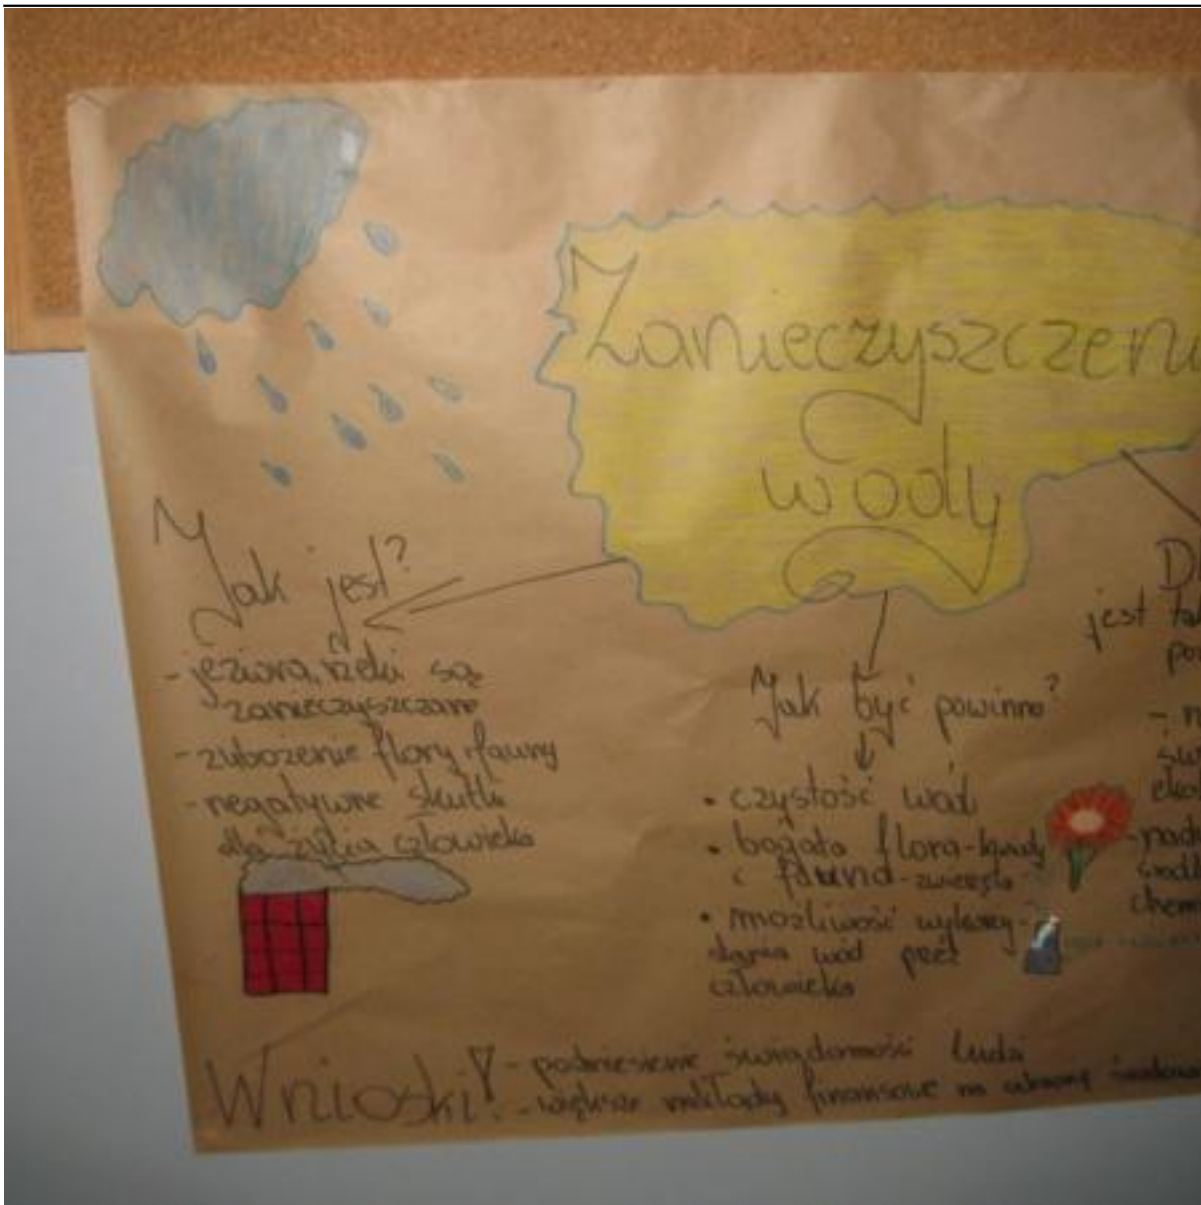 Zanieczyszczeni
wody
Jak jest?
- jeziora, rzeki są
zanieczyszczane
- zubożenie flory i fauny
- negatywne skutki
dla życia człowieka
Jak być powinno?
• czystość wód
• bogata flora-kwiaty
i fauna-zwierzęta
• możliwość wykorzy-
stania wód przez
człowieka
jest
Wnioski! - podniesienie świadomości ludzi
- większe nakłady finansowe na ochronę